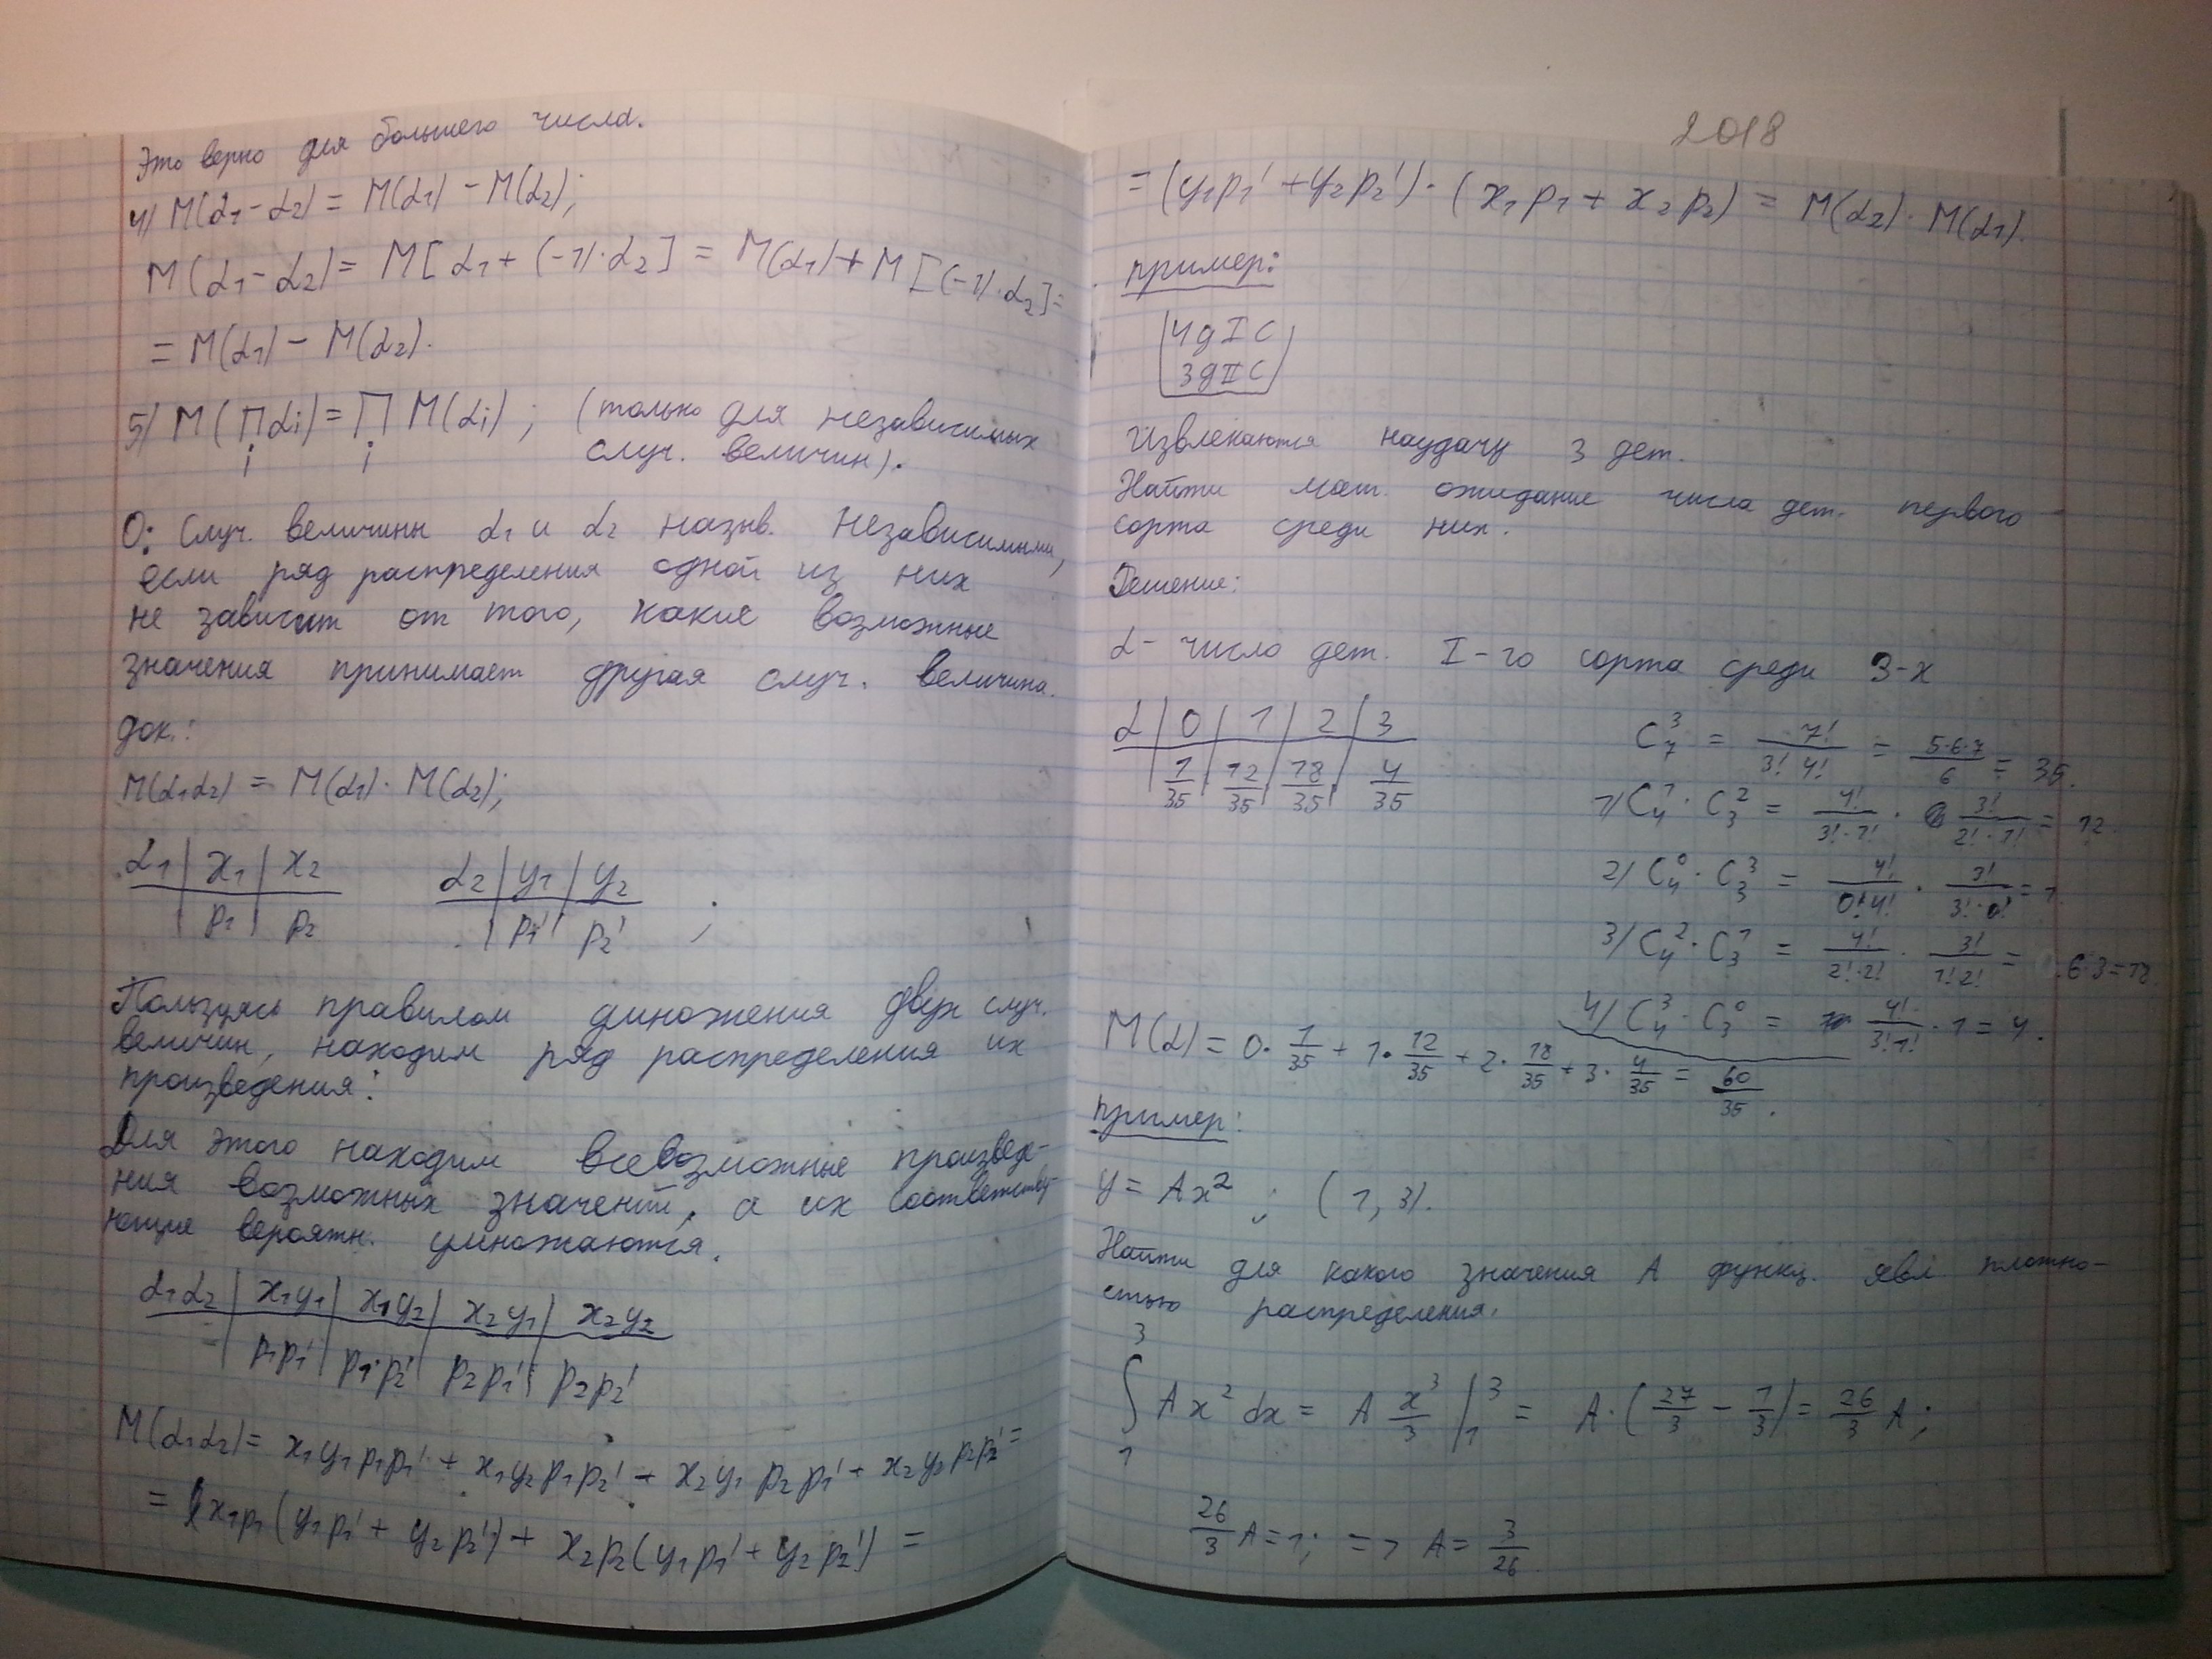 Это верно для большего числа.
4) M(α₁-α₂) = M(α₁) - M(α₂);
M(α₁-α₂) = M[α₁ + (-1)·α₂] = M(α₁) + M[(-1)·α₂] =
= M(α₁) - M(α₂).
5) M(∏αi) = ∏ M(αi) ; (только для независимых
i i случ. величин).
О: Случ. величины α₁ и α₂ назыв. независимыми,
если ряд распределения одной из них
не зависит от того, какие возможные
значения принимает другая случ. величина.
док.:
M(α₁α₂) = M(α₁)·M(α₂);
α₁ | x₁ | x₂ α₂ | y₁ | y₂
| p₁ | p₂ | p₁' p₂' ;
Пользуясь правилом умножения двух случ.
величин, находим ряд распределения их
произведения:
Для этого находим всевозможные произведе-
ния возможных значений, а их соответству-
ющие вероятн. умножаются.
α₁α₂ | x₁y₁ | x₁y₂ | x₂y₁ | x₂y₂
- | p₁p₁' | p₁·p₂' | p₂p₁' | p₂p₂'
M(α₁α₂) = x₁y₁p₁p₁' + x₁y₂p₁p₂' + x₂y₁p₂p₁' + x₂y₂p₂p₂' =
= x₁p₁(y₁p₁' + y₂p₂') + x₂p₂(y₁p₁' + y₂p₂') =
2018
= (y₁p₁' + y₂p₂')·(x₁p₁ + x₂p₂) = M(α₂)·M(α₁).
пример:
4дIС
3дIIС
Извлекаются наудачу 3 дет.
Найти мат. ожидание числа дет. первого
сорта среди них.
Решение:
α- число дет. I-го сорта среди 3-х
α | 0 | 1 | 2 | 3
| 1/35 | 12/35 | 18/35 | 4/35
C₇³ = 7!/(3! 4!) = 5·6·7/6 = 35.
1) C₄¹·C₃² = 4!/(3!·1!) · 3!/(2!·1!) = 12.
2) C₄⁰·C₃³ = 4!/(0!4!) · 3!/(3!·0!) = 1.
3) C₄²·C₃¹ = 4!/(2!·2!) · 3!/(1!2!) = 6·3=18
4) C₄³·C₃⁰ = 4!/(3!1!) · 1 = 4.
M(α) = 0·1/35 + 1·12/35 + 2·18/35 + 3·4/35 = 60/35.
пример:
y = Ax² ; (1,3).
Найти для какого значения A функц. явл плотно-
стью распределения.
3
∫ Ax² dx = A x³/3 |₁³ = A·(27/3 - 1/3) = 26/3 A;
1
26/3 A = 1; => A = 3/26.